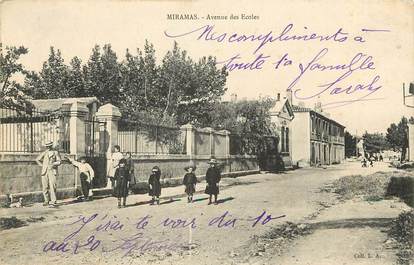 MIRAMAS. - Avenue des Ecoles
Mes compliments à
toute ta famille
Sarah
J'irai te voir du 10
au 20 Septembre
Coll. L. A.